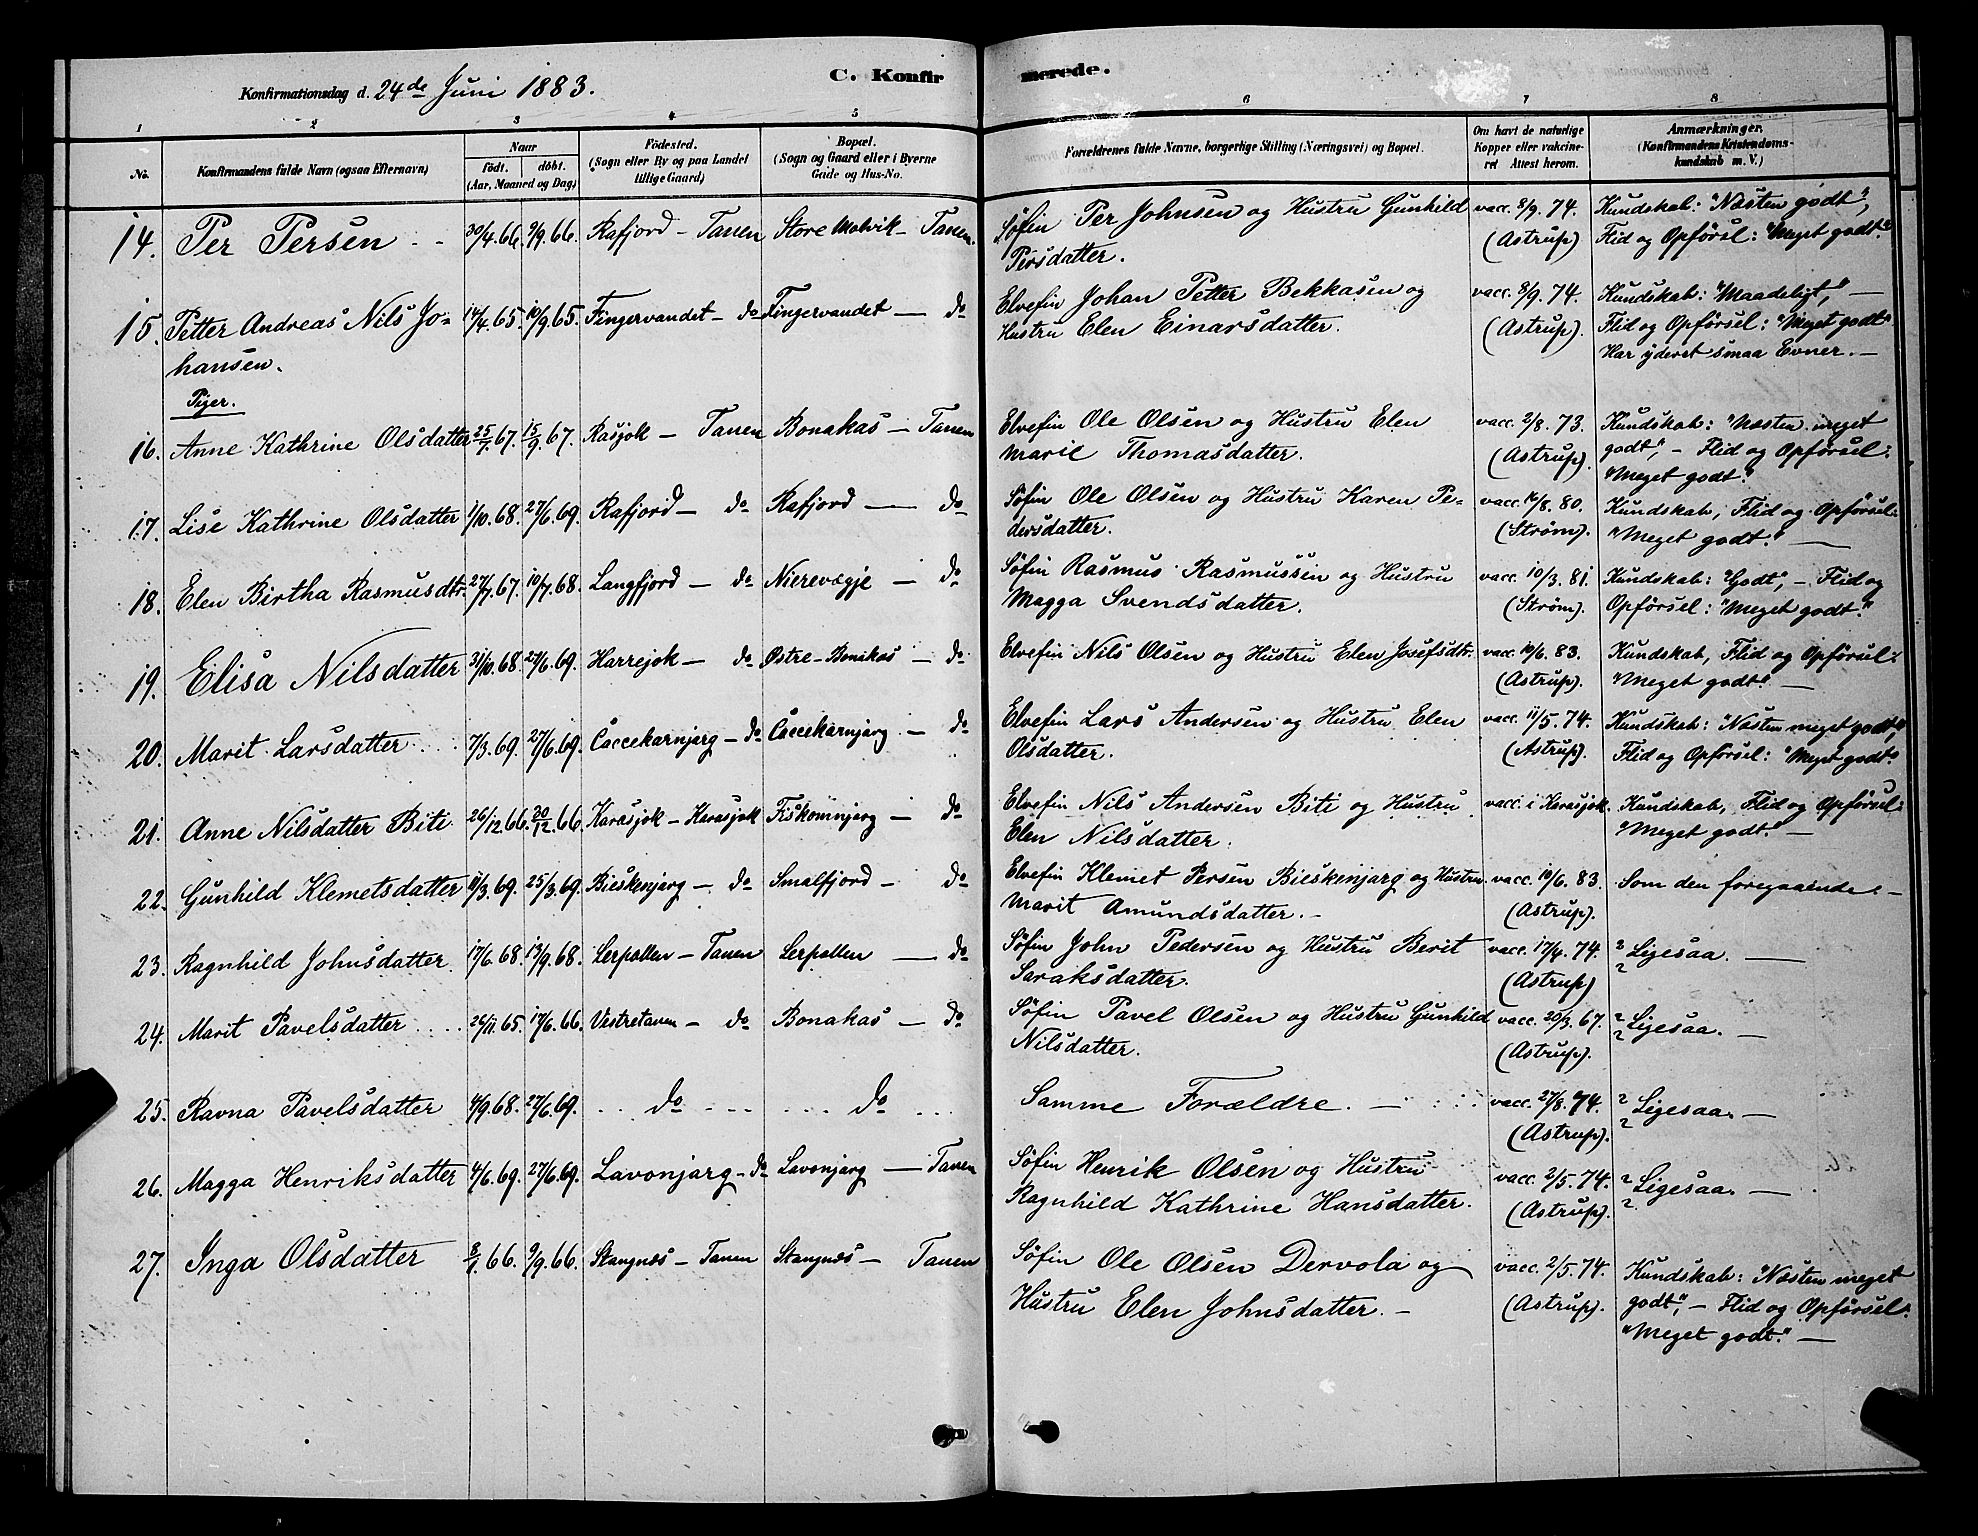 Konfirmationsdag d. 24de Juni 1883.
C. Konfir
merede.
1 2 3 4 5 6 7 8
No.
Konfirmandens fulde Navn (ogsaa Efternavn)
Naar
født. døbt.
(Aar, Maaned og Dag)
Fødested.
(Sogn eller By og paa Landet
tillige Gaard)
Bopæl.
(Sogn og Gaard eller i Byerne
Gade og Hus-No.
Forældrenes fulde Navne, borgerlige Stilling (Næringsvei) og Bopæl.
Om havt de naturlige
Kopper eller vakcine-
ret Attest herom.
Anmærkninger.
(Konfirmandens Kristendoms-
kundskab m. V.)
14. Per Persen 30/4.66. 9/9.66. Rafjord - Tanen Store Molvik - Tanen. Søfin Per Johnsen og Hustru Gunhild vacc. 8/9. 74. Kundskab: "Næsten godt",
Persdatter. (Astrup) Flid og Opførsl: "Meget godt".
15. Petter Andreas Nils Jo- 14/4.65. 10/9.65. Fingervandet - do Fingervandet - do Elvefin Johan Petter Bekkasen og vacc. 8/9. 74. Kundskab: "Maadeligt", -
hansen. Hustru Elen Einarsdatter. (Astrup). Flid og Opførsel: "Meget godt".
Har yderet smaa Evner. -
Piger.
16. Anne Kathrine Olsdatter 25/7.67. 15/9.67. Rasjok - Tanen Bonakas - Tanen Elvefin Ole Olsen og Hustru Elen vacc. 2/8. 73. Kundskab: "Næsten meget
Marit Thomasdatter. (Astrup). godt", - Flid og Opførsel:
"Meget godt".
17. Lise Kathrine Olsdatter 1/10.68. 27/6.69. Rafjord - do Rafjord - do Søfin Ole Olsen og Hustru Karen Pe- vacc. 16/8. 80. Kundskab, Flid og Opførsel:
dersdatter. (Strøm). "Meget godt". -
18. Elen Birtha Rasmusdtr. 27/7.67. 10/7.68. Langfjord - do Nierevægje - do Søfin Rasmus Rasmussen og Hustru vacc. 10/3. 81. Kundskab: "Godt", - Flid og
Magga Svendsdatter. (Strøm). Opførsel: "Meget godt".
19. Elisa Nilsdatter 31/10.68. 27/6.69. Harrejok - do Østre-Bonakas - do Elvefin Nils Olsen og Hustru Elen Josefsdtr. vacc. 10/6. 83. Kundskab, Flid og Opførsel:
(Astrup). "Meget godt". -
20. Marit Larsdatter 7/3.69. 27/6.69. Caccekarnjarg - do Caccekarnjarg - do Elvefin Lars Andersen og Hustru Elen vacc. 11/5. 74. Kundskab: "Næsten meget godt",
Olsdatter. (Astrup). Flid og Opførsel: "Meget godt".
21. Anne Nilsdatter Biti 26/12.66. 30/12.66. Karasjok - Karasjok Fiskominjarg - do Elvefin Nils Andersen Biti og Hustru vacc. i Karasjok. Kundskab, Flid og Opførsel:
Elen Nilsdatter. "Meget godt". -
22. Gunhild Klemetsdatter 11/3.69. 25/3.69. Bieskenjarg - do Smalfjord - do Elvefin Klemet Persen Bieskenjarg og Hustru vacc. 10/6. 83. Som den foregaaende. -
Marit Amundsdatter. - (Astrup).
23. Ragnhild Johnsdatter. 17/6.68. 13/9.68. Lerpollen - Tanen Lerpollen - do Søfin John Pedersen og Hustru Berit vacc. 17/4. 74. Ligesaa. -
Saraksdatter. (Astrup)
24. Marit Pavelsdatter 26/11.65. 17/6.66. Vestretanen - do Bonakas - do Søfin Pavel Olsen og Hustru Gunhild vacc. 20/3. 67. Ligesaa. -
Nilsdatter. (Astrup).
25. Ravna Pavelsdatter 4/9.68. 27/6.69. do do Samme Forældre. - vacc. 27/8. 74. Ligesaa. -
(Astrup).
26. Magga Henriksdatter 4/6.69. 27/6.69. Lavonjarg - do Lavonjarg - Tanen Søfin Henrik Olsen og Hustru vacc. 2/5. 74. Ligesaa. -
Ragnhild Kathrine Hansdatter. (Astrup).
27. Inga Olsdatter 66. 9/9.66. Stangnæs - Tanen Stangnæs - Tanen Søfin Ole Olsen Dervola og vacc. 2/5. 74. Kundskab: "Næsten meget
Hustru Elen Johnsdatter. - (Astrup). godt", - Flid og Opførsel:
"Meget godt". -